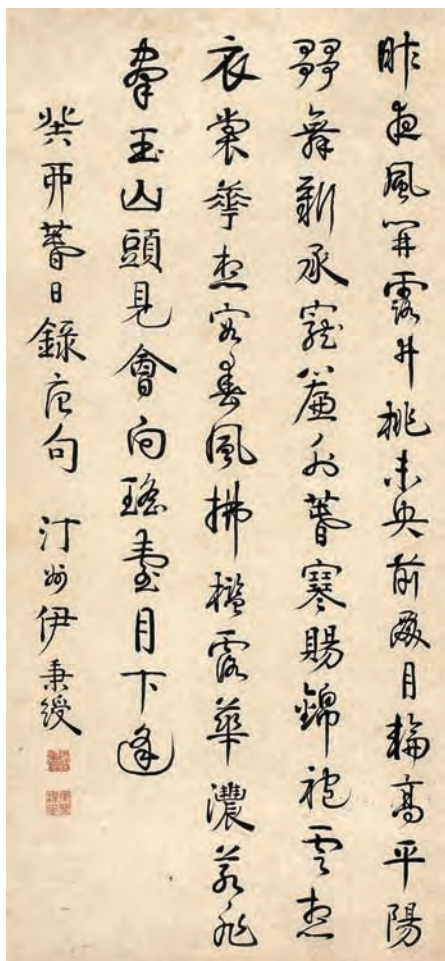 昨夜風開露井桃未央前殿月輪高平陽
歌舞新承寵簾外萅寒賜錦袍雲想
衣裳華想容春風拂檻露華濃若非
羣玉山頭見會向瑤臺月下逢
癸丣萅日錄唐句 汀州伊秉綬